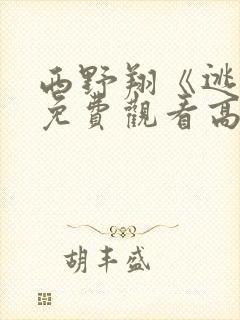 西野翔《逃
免費觀看高
胡丰盛